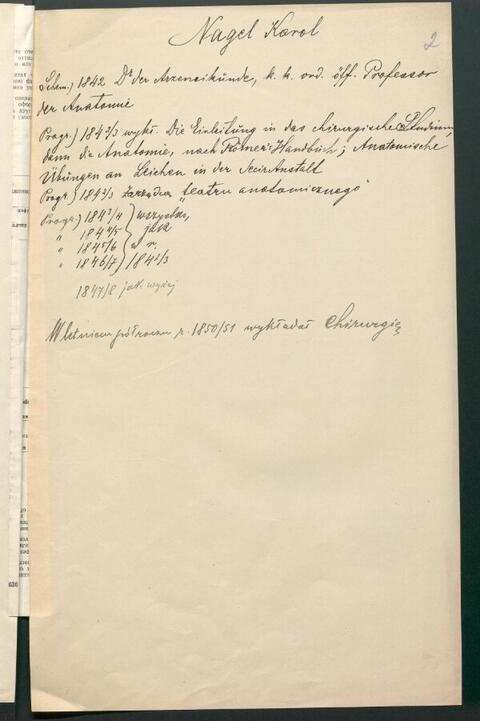 Nagel Karol
2
Schem.) 1842 Dr der Arzneikunde, k. k. ord. öff. Professor
der Anatomie
Progr.) 1842/3 wykł. Die Einleitung in das chirurgische Studium,
dann die Anatomie, nach Römer's Handbuch; Anatomische
Übungen an Leichen in der Secir Anstalt
Progr.) 1842/3 Zarządca "teatru anatomicznego"
Progr.) 1843/4 ) wszystko,
" 1844/5 ) jak
" 1845/6 ) w r.
" 1846/7 ) 1842/3
1847/8 jak wyżej
W letniem półroczu r. 1850/51 wykładał Chirurgię